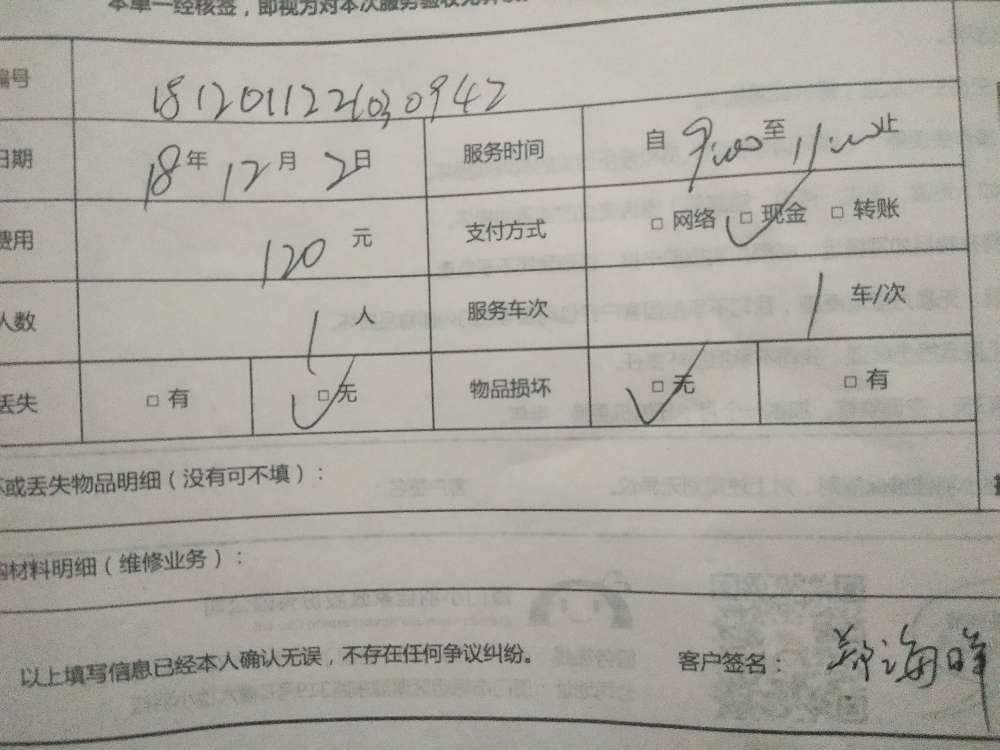 本单一经核签，即视为对本次服务验收无异
编号 18120112263 0942
日期 18年 12月 2日 服务时间 自 9:00 至 11:00 止
费用 120 元 支付方式 □ 网络 □ 现金 □ 转账
人数 1 人 服务车次 1 车/次
丢失 □ 有 □ 无 物品损坏 □ 无 □ 有
坏或丢失物品明细（没有可不填）：
购材料明细（维修业务）：
以上填写信息已经本人确认无误，不存在任何争议纠纷。 客户签名： 郑海